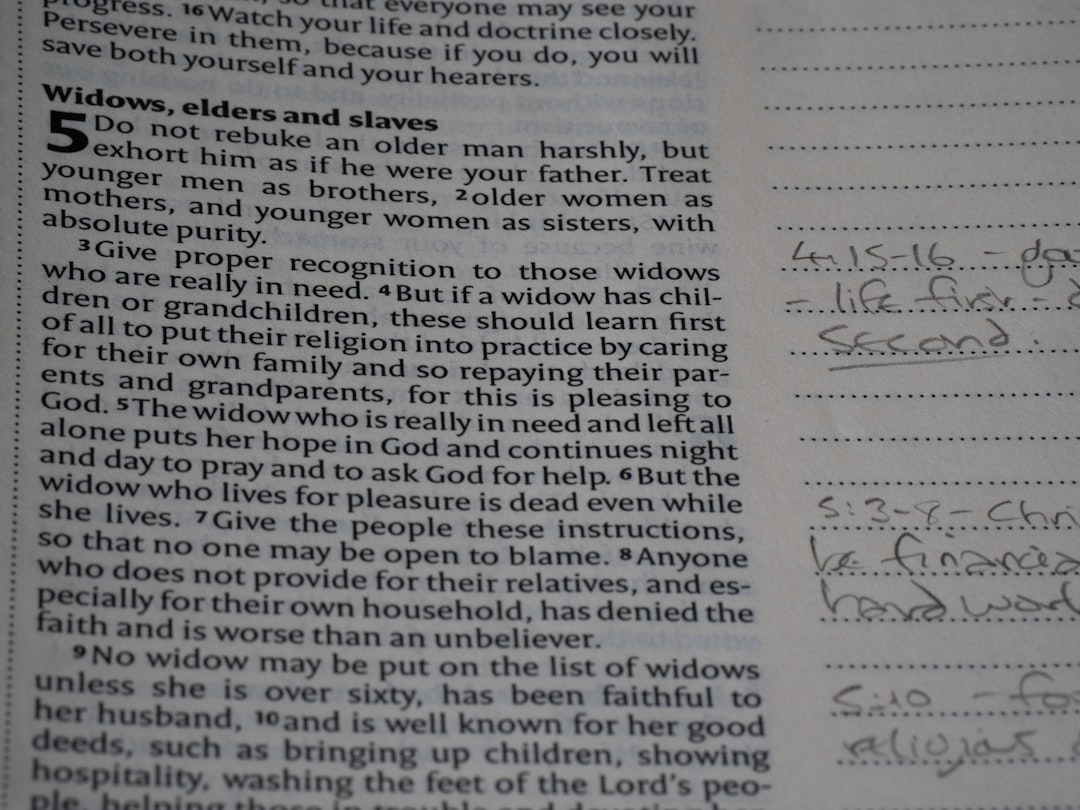 progress. 16 Watch your life and doctrine closely.
that everyone may see your
Persevere in them, because if you do, you will
save both yourself and your hearers.
Widows, elders and slaves
5 Do not rebuke an older man harshly, but
exhort him as if he were your father. Treat
younger men as brothers, 2 older women as
mothers, and younger women as sisters, with
absolute purity.
3 Give proper recognition to those widows
who are really in need. 4 But if a widow has chil-
dren or grandchildren, these should learn first
of all to put their religion into practice by caring
for their own family and so repaying their par-
ents and grandparents, for this is pleasing to
God. 5 The widow who is really in need and left all
alone puts her hope in God and continues night
and day to pray and to ask God for help. 6 But the
widow who lives for pleasure is dead even while
she lives. 7 Give the people these instructions,
so that no one may be open to blame. 8 Anyone
who does not provide for their relatives, and es-
pecially for their own household, has denied the
faith and is worse than an unbeliever.
9 No widow may be put on the list of widows
unless she is over sixty, has been faithful to
her husband, 10 and is well known for her good
deeds, such as bringing up children, showing
hospitality, washing the feet of the Lord's peo-
ple, helping those in trouble and devoting her
4:15-16 -
- life first -
second.
5:3-8 - Chri
be financia
hard wor
5:10 - fo
religious